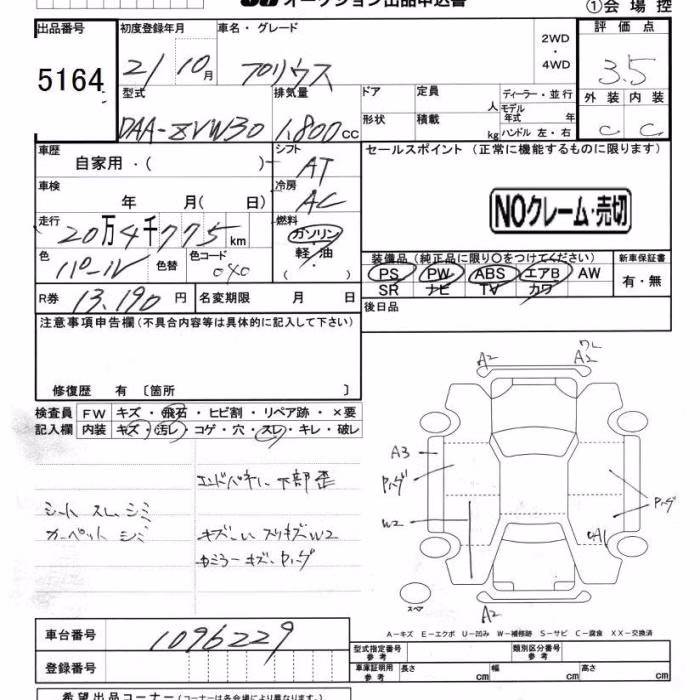 オークション出品申込書
①会場控
出品番号
5164
初度登録年月
21 10月
車名・グレード
プリウス
2WD
・
4WD
評価点
3.5
外装 内装
C C
型式
DAA-ZVW30
排気量
1,800cc
ドア
形状
定員 人
積載 kg
ディーラー・並行
モデル年式 年
ハンドル 左・右
車歴
自家用・( )
シフト
AT
車検
年 月( 日)
冷房
AC
走行
20万4千775km
燃料
ガソリン
軽・油
( ・ )
色
パール
色替
色コード
040
R券 13,190円
名変期限 月 日
セールスポイント (正常に機能するものに限ります)
NOクレーム・売切
装備品(純正品に限り○をつけてください)
PS PW ABS エアB AW
SR ナビ TV カワ
新車保証書
有・無
後日品
注意事項申告欄(不具合内容等は具体的に記入して下さい)
修復歴 有 〔箇所 〕
検査員 FW キズ・飛石・ヒビ割・リペア跡・×要
記入欄 内装 キズ・汚レ・コゲ・穴・スレ・キレ・破レ
エンドパネル下部歪
シート スレ シミ
カーペット シミ
W2
キズ
A2
A2
A3
W2
A2
スペア
A-キズ E-エクボ U-凹み W-補修跡 S-サビ C-腐食 XX-交換済
車台番号 1096229
登録番号
型式指定番号 参考
類別区分番号 参考
車庫証明用 参考 長さ cm 幅 cm 高さ cm
希望出品コーナー(コーナーは各会場により異なります)